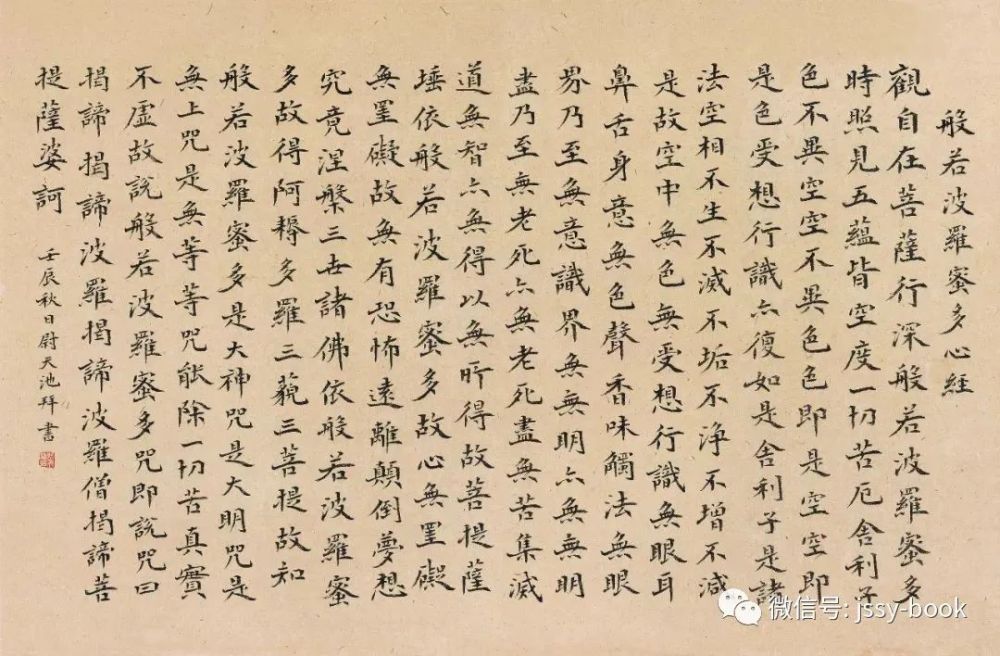 般若波羅蜜多心経
觀自在菩薩行深般若波羅蜜多
時照見五蘊皆空度一切苦厄舍利子
色不異空空不異色色即是空空即
是色受想行識亦復如是舍利子是諸
法空相不生不滅不垢不淨不增不減
是故空中無色無受想行識無眼耳
鼻舌身意無色聲香味觸法無眼
界乃至無意識界無無明亦無無明
盡乃至無老死亦無老死盡無苦集滅
道無智亦無得以無所得故菩提薩
埵依般若波羅蜜多故心無罣礙
無罣礙故無有恐怖遠離顛倒夢想
究竟涅槃三世諸佛依般若波羅蜜
多故得阿耨多羅三藐三菩提故知
般若波羅蜜多是大神咒是大明咒是
無上咒是無等等咒能除一切苦真實
不虛故說般若波羅蜜多咒即說咒曰
揭諦揭諦波羅揭諦波羅僧揭諦菩
提薩婆訶
壬辰秋日尉天池拜書
微信号: jssy-book